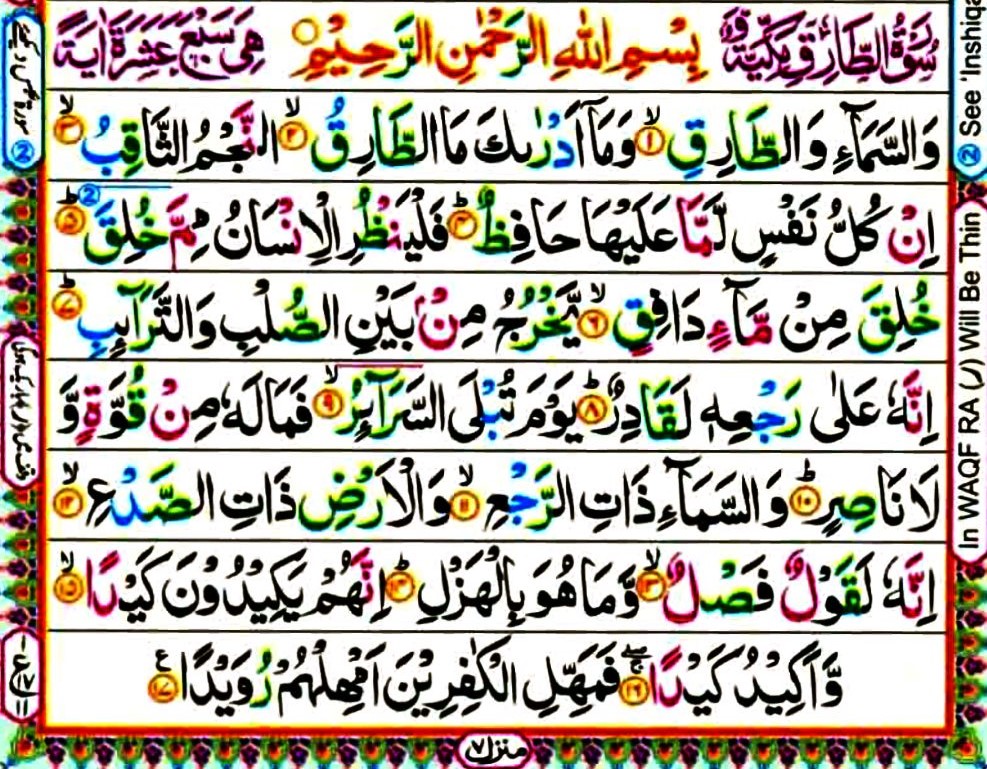 سُوْرَةُ الطَّارِقِ مَكِّيَّةٌ وَّ
بِسْمِ اللهِ الرَّحْمٰنِ الرَّحِيْمِ
هِىَ سَبْعَ عَشْرَةَ اٰيَةً
وَالسَّمَآءِ وَالطَّارِقِ ۙ﴿۱﴾ وَمَاۤ اَدْرٰىكَ مَا الطَّارِقُ ۙ﴿۲﴾ النَّجْمُ الثَّاقِبُ ۙ﴿۳﴾
اِنْ كُلُّ نَفْسٍ لَّمَّا عَلَيْهَا حَافِظٌ ؕ﴿۴﴾ فَلْيَنْظُرِ الْاِنْسَانُ مِمَّ خُلِقَ ؕ﴿۵﴾ ②
خُلِقَ مِنْ مَّآءٍ دَافِقٍ ۙ﴿۶﴾ يَّخْرُجُ مِنْۢ بَيْنِ الصُّلْبِ وَالتَّرَآئِبِ ؕ﴿۷﴾
اِنَّهٗ عَلٰى رَجْعِهٖ لَقَادِرٌ ؕ﴿۸﴾ يَوْمَ تُبْلَى السَّرَآئِرُ ۙ﴿۹﴾ فَمَا لَهٗ مِنْ قُوَّةٍ وَّ
لَا نَاصِرٍ ؕ﴿۱۰﴾ وَالسَّمَآءِ ذَاتِ الرَّجْعِ ۙ﴿۱۱﴾ وَالْاَرْضِ ذَاتِ الصَّدْعِ ۙ﴿۱۲﴾
اِنَّهٗ لَقَوْلٌ فَصْلٌ ۙ﴿۱۳﴾ وَّمَا هُوَ بِالْهَزْلِ ؕ﴿۱۴﴾ اِنَّهُمْ يَكِيْدُوْنَ كَيْدًا ۙ﴿۱۵﴾
وَّاَكِيْدُ كَيْدًا ۚۖ﴿۱۶﴾ فَمَهِّلِ الْكٰفِرِيْنَ اَمْهِلْهُمْ رُوَيْدًا ﴿۱۷﴾ ع
منزل ۷
② See 'Inshiqa
In WAQF RA (ر) Will Be Thin
②